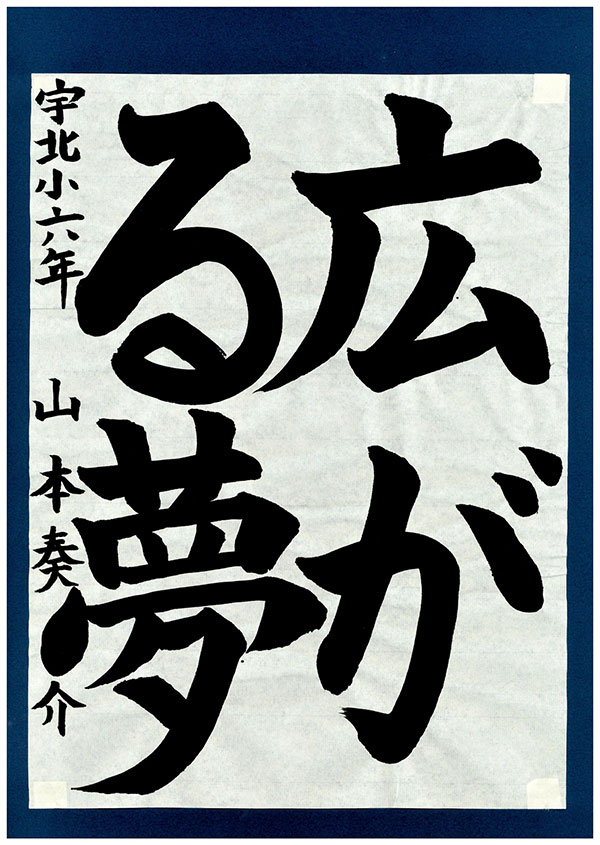 広が
る夢
宇北小六年 山本奏介